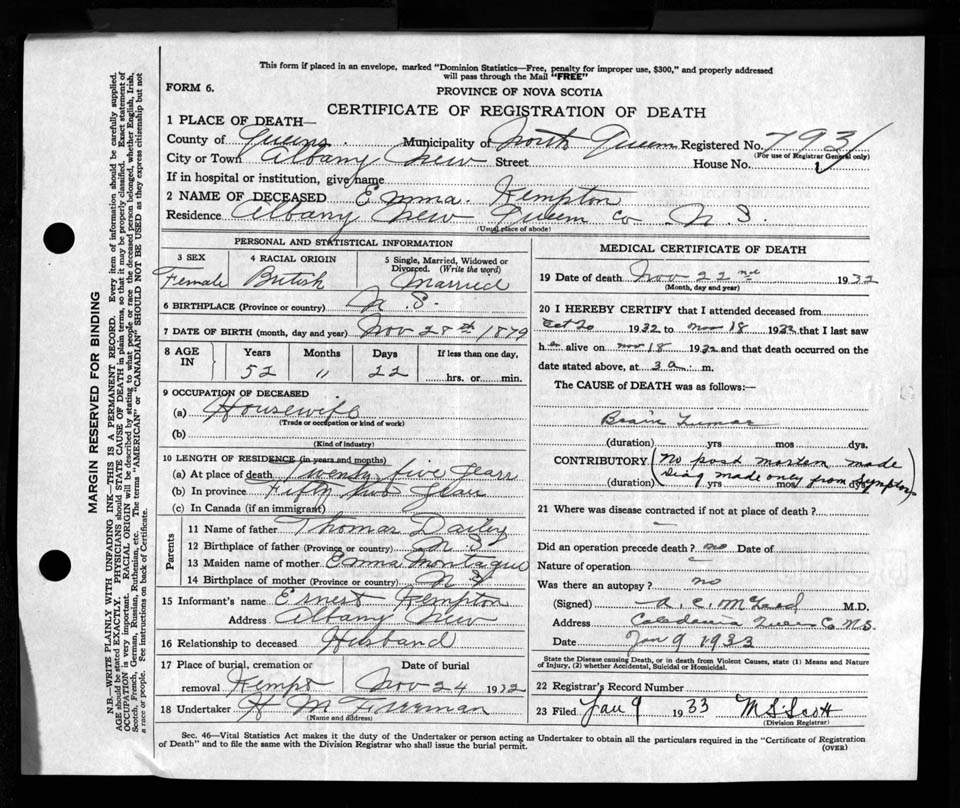 This form if placed in an envelope, marked "Dominion Statistics—Free, penalty for improper use, $300," and properly addressed
will pass through the Mail "FREE"
FORM 6.
PROVINCE OF NOVA SCOTIA
CERTIFICATE OF REGISTRATION OF DEATH
1 PLACE OF DEATH—
County of Queens. Municipality of North Queens Registered No. 7931
(For use of Registrar General only)
City or Town Albany New Street House No.
If in hospital or institution, give name
2 NAME OF DECEASED Emma. Kempton
Residence Albany New Queens Co N.S.
(Usual place of abode)
PERSONAL AND STATISTICAL INFORMATION
3 SEX Female
4 RACIAL ORIGIN British
5 Single, Married, Widowed or Divorced. (Write the word) Married
6 BIRTHPLACE (Province or country) N.S.
7 DATE OF BIRTH (month, day and year) Nov 28th 1879
8 AGE IN
Years Months Days If less than one day,
52 " 22 hrs. or min.
9 OCCUPATION OF DECEASED
(a) Housewife
(Trade or occupation or kind of work)
(b)
(Kind of industry)
10 LENGTH OF RESIDENCE (in years and months)
(a) At place of death Twenty five years
(b) In province Fifty two years
(c) In Canada (if an immigrant)
Parents
11 Name of father Thomas Dailey
12 Birthplace of father (Province or country) N S
13 Maiden name of mother Emma Montague
14 Birthplace of mother (Province or country) N S
15 Informant's name Ernest Kempton
Address Albany New
16 Relationship to deceased Husband
17 Place of burial, cremation or removal Kempt
Date of burial Nov 24 1932
18 Undertaker H M Freeman
(Name and address)
MEDICAL CERTIFICATE OF DEATH
19 Date of death Nov 22nd 1932
(Month, day and year)
20 I HEREBY CERTIFY that I attended deceased from
Oct 20 1932 to Nov 18 1932 that I last saw
her alive on Nov 18 1932 and that death occurred on the
date stated above, at 3 a. m.
The CAUSE of DEATH was as follows:—
Brain Tumor
(duration) yrs mos dys.
CONTRIBUTORY (No post mortem made
(duration) yrs mos dys.
Diag made only from symptoms)
21 Where was disease contracted if not at place of death?
Did an operation precede death? no Date of
Nature of operation
Was there an autopsy? no
(Signed) A. C. McLeod M.D.
Address Caledonia Queens Co N.S.
Date Jan 9 1933
State the Disease causing Death, or in death from Violent Causes, state (1) Means and Nature
of Injury, (2) whether Accidental, Suicidal or Homicidal.
22 Registrar's Record Number
23 Filed Jan 9 1933 M S Scott
(Division Registrar)
Sec. 46—Vital Statistics Act makes it the duty of the Undertaker or person acting as Undertaker to obtain all the particulars required in the "Certificate of Registration
of Death" and to file the same with the Division Registrar who shall issue the burial permit.
(OVER)
MARGIN RESERVED FOR BINDING
N.B.—WRITE PLAINLY WITH UNFADING INK—THIS IS A PERMANENT RECORD. Every item of information should be carefully supplied.
AGE should be stated EXACTLY. PHYSICIANS should STATE CAUSE OF DEATH in plain terms, so that it may be properly classified. Exact statement of
OCCUPATION is very important. RACIAL ORIGIN will be described by stating to what people or race the deceased person belonged, whether English, Irish,
Scotch, French, German, Russian, Ruthenian, etc. The terms "AMERICAN" or "CANADIAN" SHOULD NOT BE USED as they express citizenship but not
a race or people. See instructions on back of Certificate.